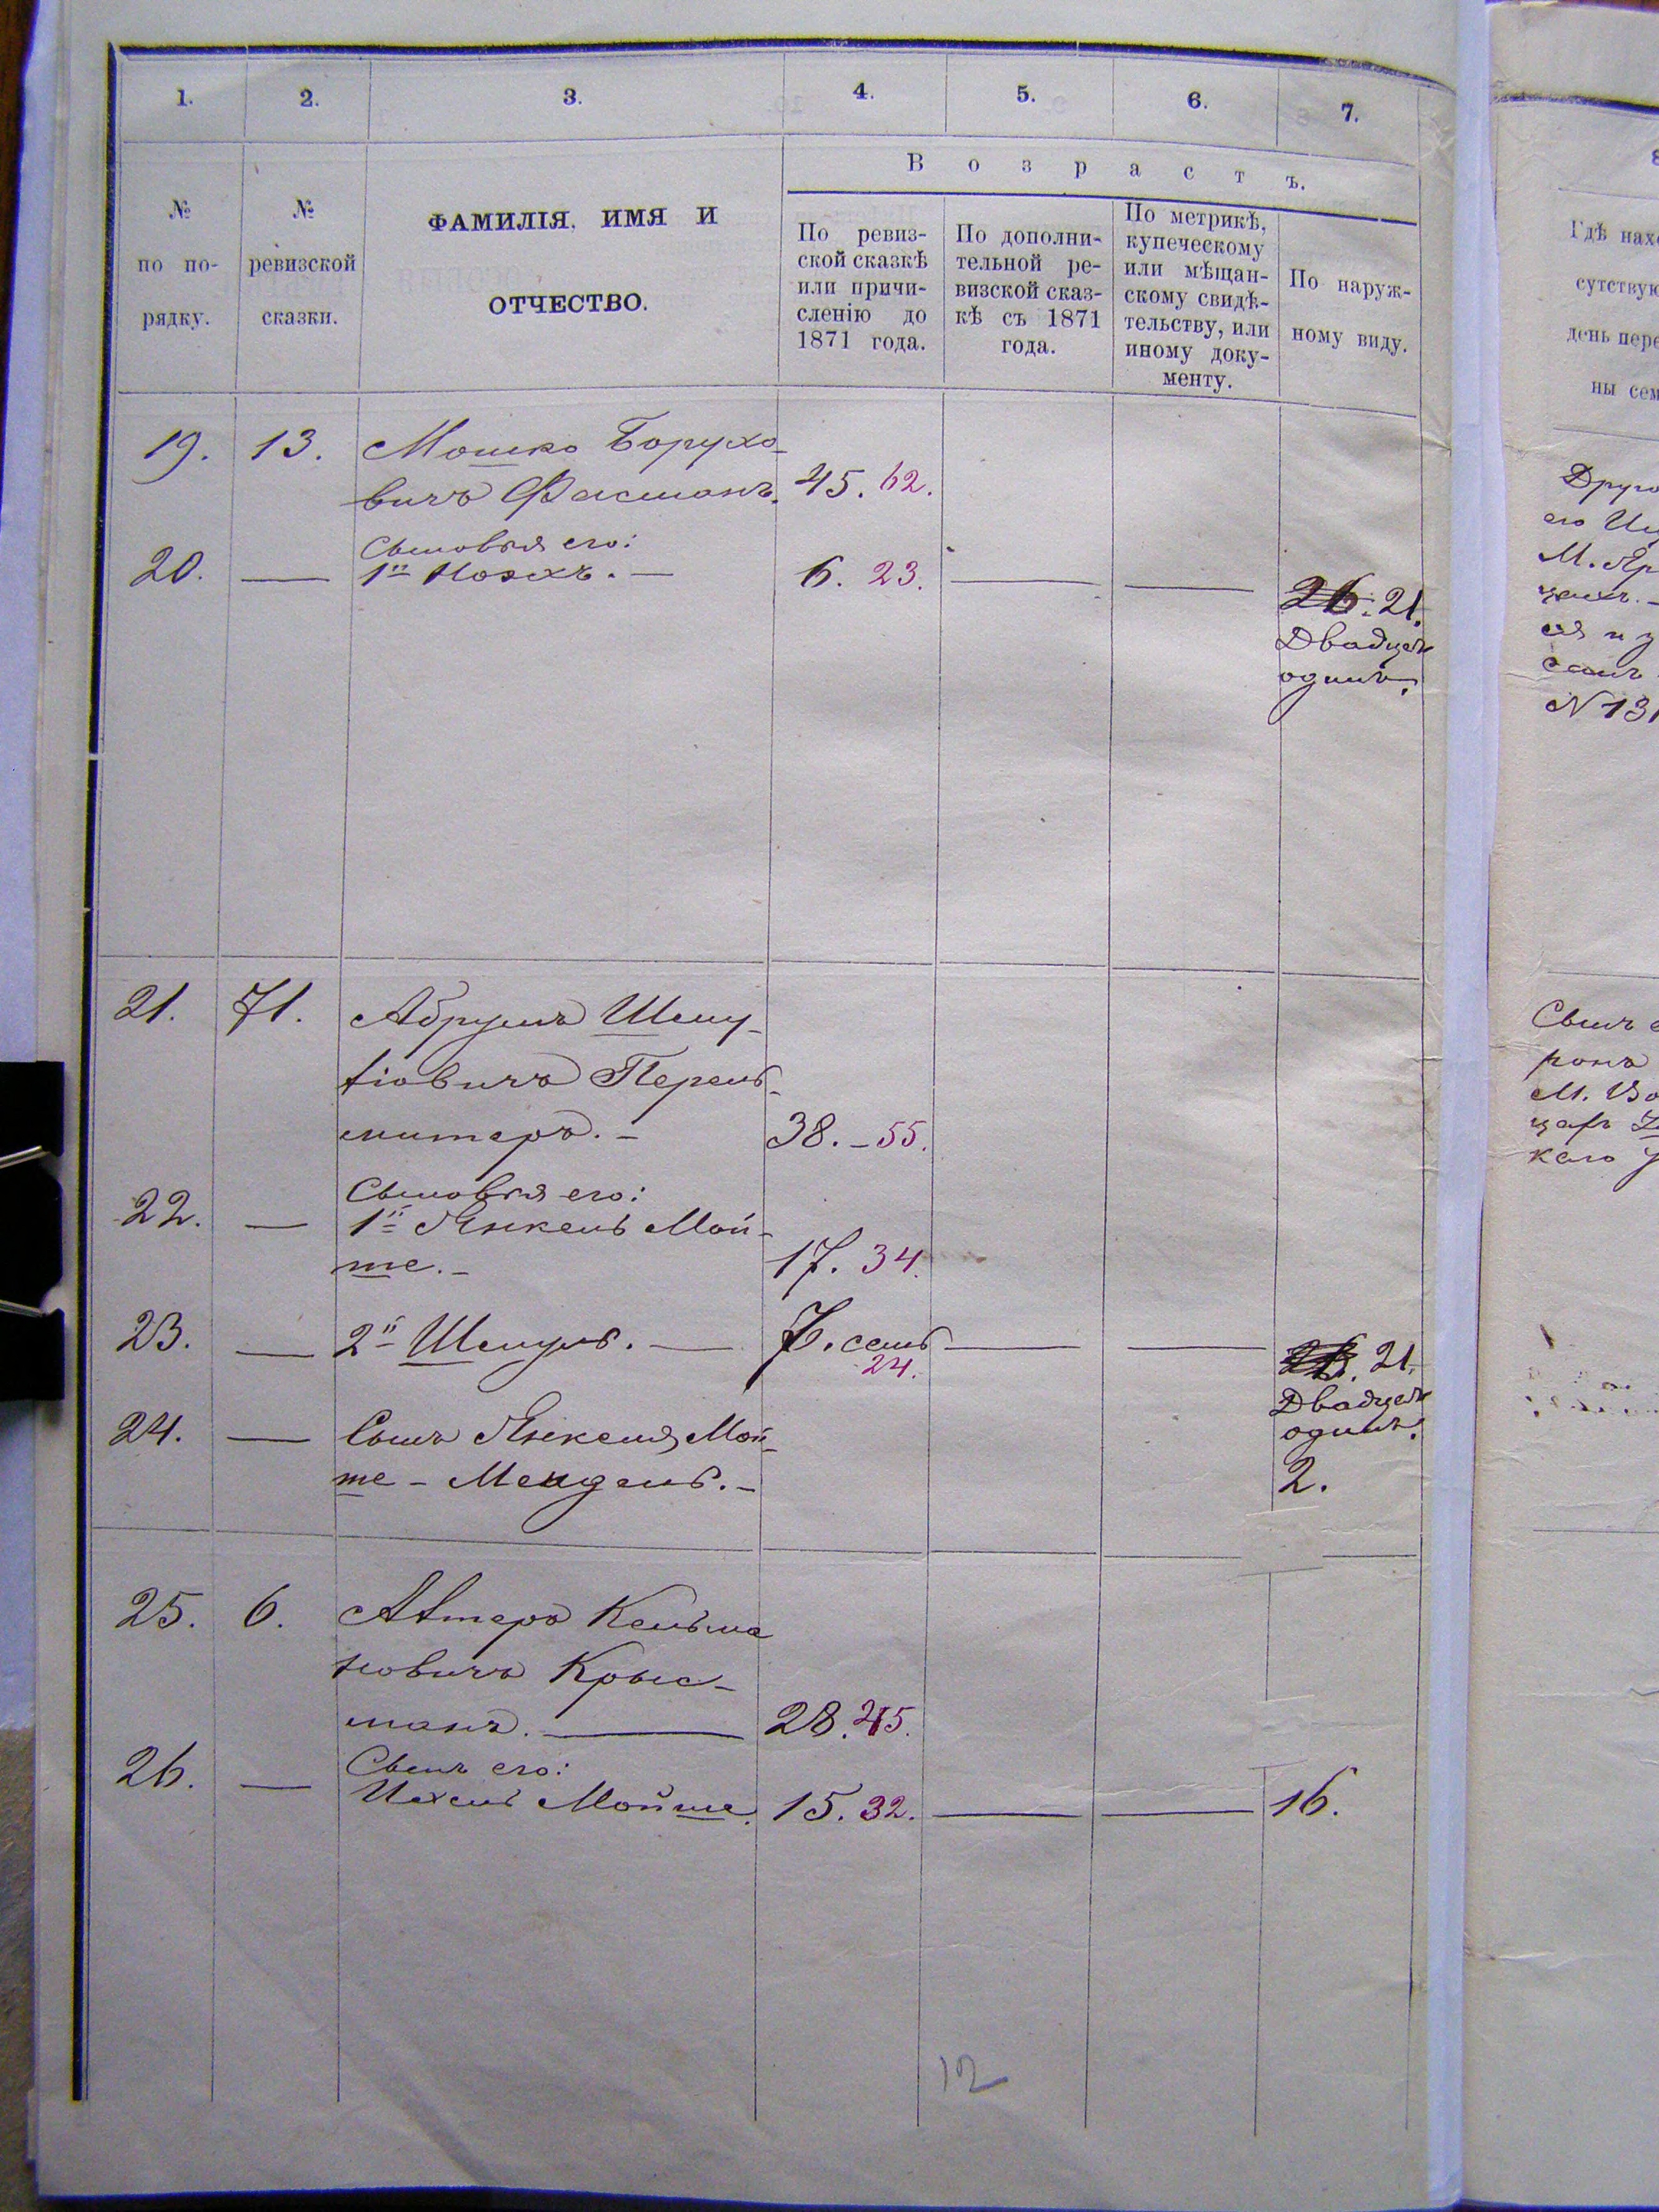 1. 2. 3. 4. 5. 6. 7.
В о з р а с т ъ.
№ по по-рядку.
№ ревизской сказки.
ФАМИЛІЯ, ИМЯ И
ОТЧЕСТВО.
По ревиз-
ской сказкѣ
или причи-
сленію до
1871 года.
По дополни-
тельной ре-
визской сказ-
кѣ съ 1871
года.
По метрикѣ,
купеческому
или мѣщан-
скому свидѣ-
тельству, или
иному доку-
менту.
По наруж-
ному виду.
19. 13. Мошко Борухо-
вичъ Фасманъ. 45. 62.
Сыновья его:
20. — 1й — 6. 23. — — 26. 21.
Двадцать
одинъ.
21. 71. Абрумъ Шму-
ліовичъ Перель-
митеръ. — 38. — 55.
Сыновья его:
22. — 1й Янкель Мой-
ше. — 17. 34.
23. — 2й Шмуль. — 7. семь — — 21.
24.
Двадцать
одинъ.
24. — Сынъ Янкеля Мой-
ше - Мендель. — 2.
25. 6. Кельма
новичъ Крыс-
манъ. — 28. 45.
Сынъ его:
26. — Ихель Мойше. 15. 32. — — 16.
12
Гдѣ
день
ны
Друго
его
М.
N 131
Сынъ
М.